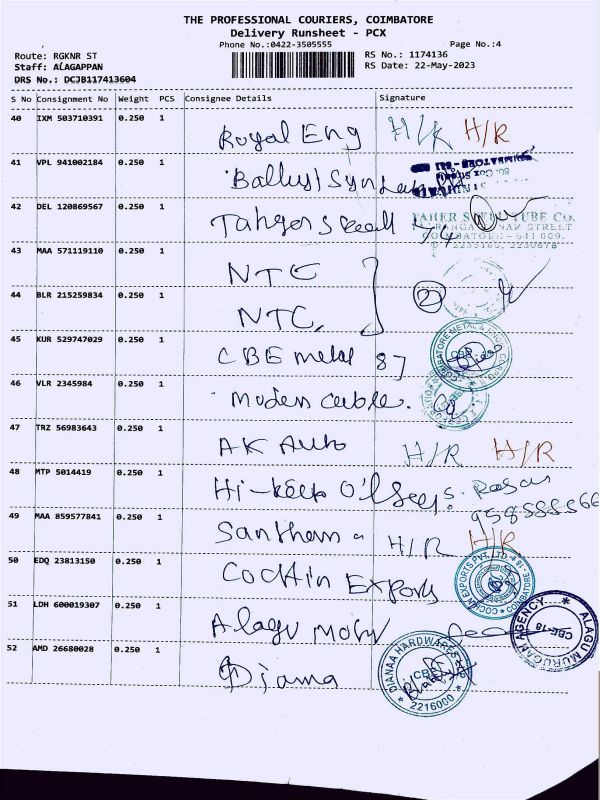 THE PROFESSIONAL COURIERS, COIMBATORE
Delivery Runsheet - PCX
Phone No.:0422-3505555 Page No.:4
Route: RGKNR ST RS No.: 1174136
Staff: ALAGAPPAN RS Date: 22-May-2023
DRS No.: DCJB117413604
S No Consignment No Weight PCS Consignee Details Signature
40 IXM 503710391 0.250 1 Royal Eng H/R H/R
41 VPL 941002184 0.250 1
42 DEL 120869567 0.250 1
TAHER STEEL TUBE CO.
COIMBATORE - 641 009.
43 MAA 571119110 0.250 1 NTC
44 BLR 215259834 0.250 1 NTC. 2
45 KUR 529747029 0.250 1 CBE metal 87
COIMBATORE METAL &
46 VLR 2345984 0.250 1 Modern cable.
47 TRZ 56983643 0.250 1 AK Auto H/R H/R
48 MTP 5014419 0.250 1 Hi-keep
49 MAA 859577841 0.250 1 H/R H/R
50 EDQ 23813150 0.250 1 Cochin Exports
COCHIN EXPORTS PVT. LTD COIMBATORE - 18
51 LDH 600019307 0.250 1 Alagu
ALAGU MURUGAN AGENCY CBE-18
52 AMD 26680028 0.250 1 Diama
DIANAA HARDWARES CBE 2216000